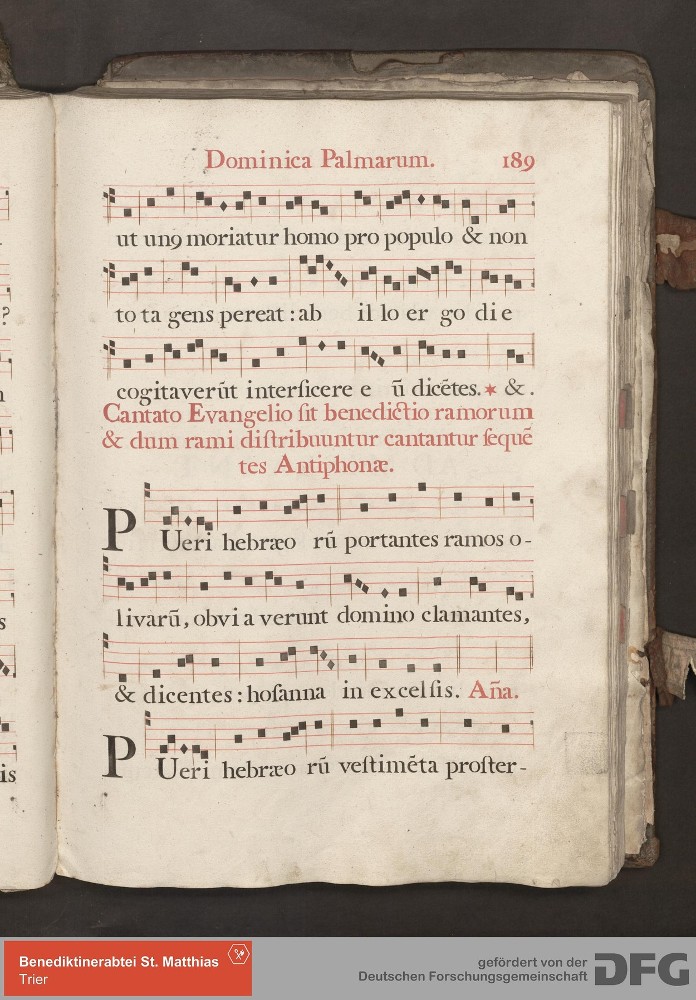 Dominica Palmarum. 189
ut unꝯ moriatur homo pro populo & non
to ta gens pereat : ab il lo er go di e
cogitaverũt interficere e ũ dicẽtes. * & .
Cantato Evangelio ſit benedictio ramorum
& dum rami diſtribuuntur cantantur ſequẽ
tes Antiphonæ.
PUeri hebræo rũ portantes ramos o-
livarũ, obvi a verunt domino clamantes,
& dicentes : hoſanna in excelſis. Aña.
PUeri hebræo rũ veſtimẽta proſter-
?
s
is
Benediktinerabtei St. Matthias
Trier
gefördert von der
Deutschen Forschungsgemeinschaft
DFG